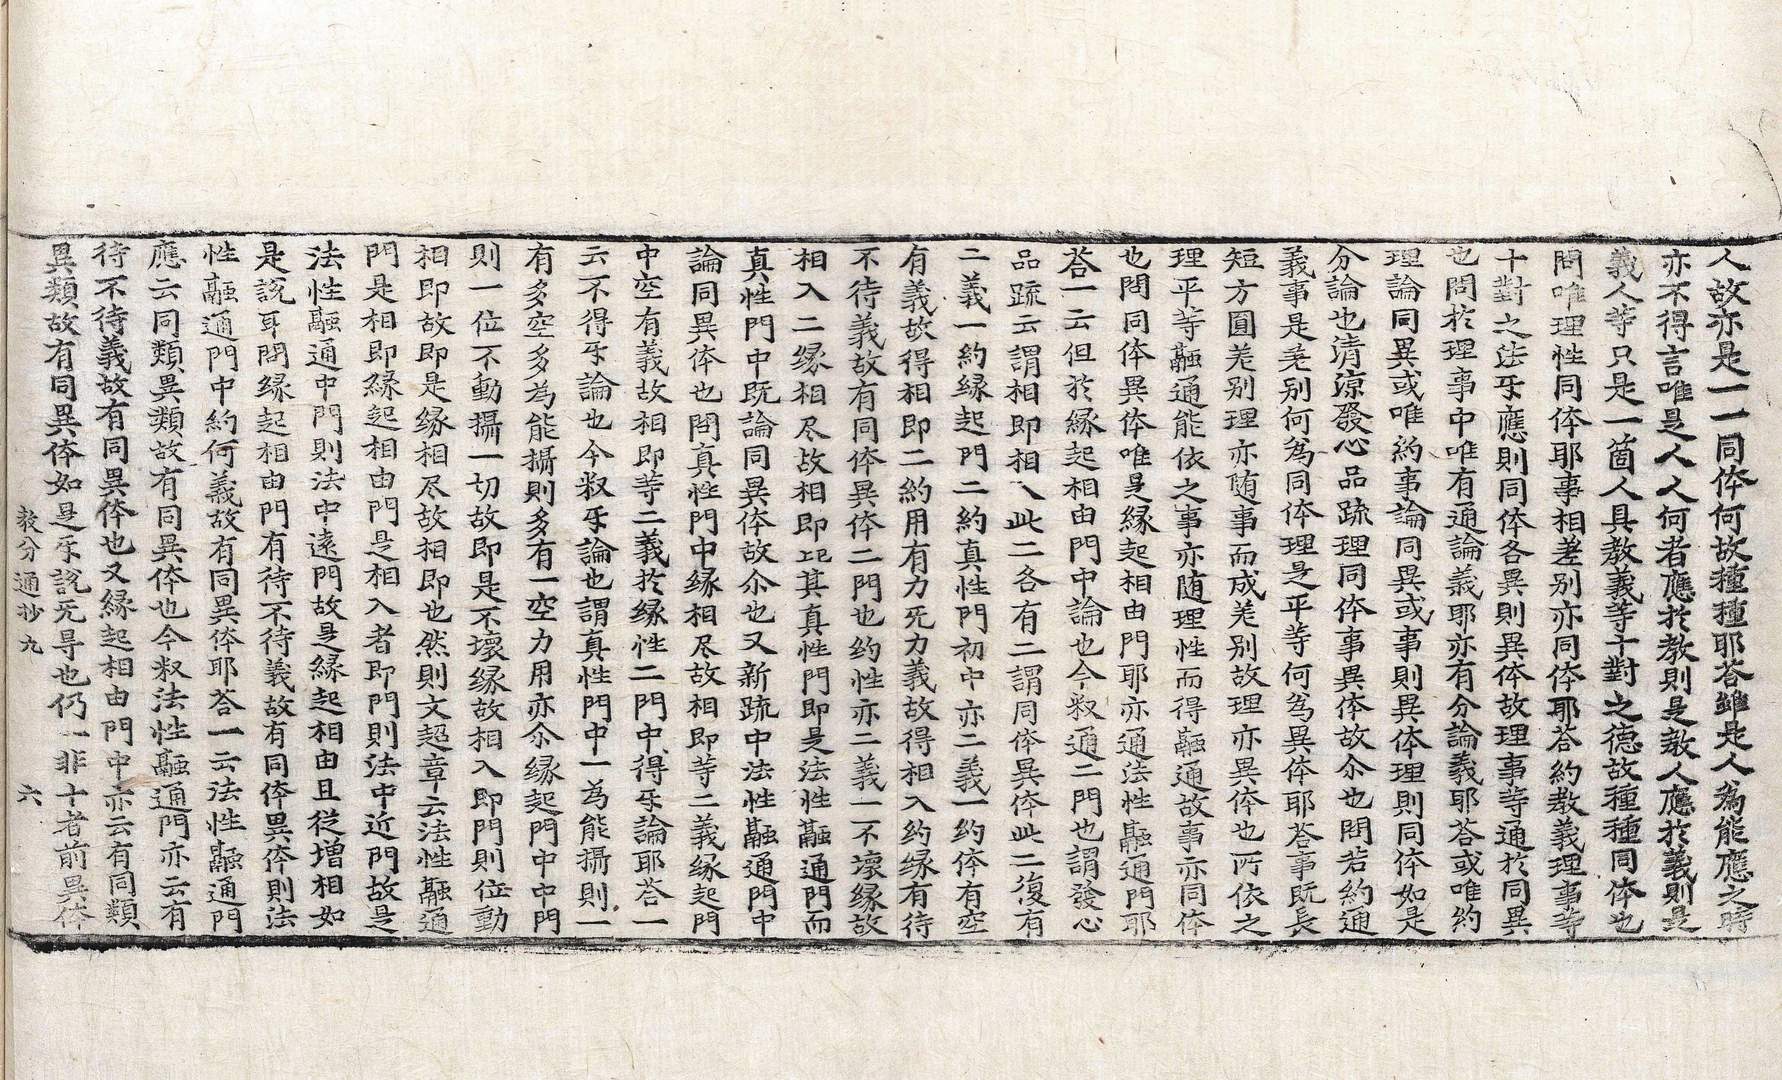 人故亦是一一同体何故種種耶荅雖是人為能應之時
亦不得言唯是人人何者應於教則是教人應於義則是
義人等只是一箇人具教義等十對之德故種種同体也
問唯理性同体耶事相差別亦同体耶荅約教義理事等
十對之法 應則同体各異則異体故理事等通於同異
也問於理事中唯有通論義耶亦有分論義耶荅或唯約
理論同異或唯約事論同異或事則異体理則同体如是
分論也清涼發心品䟽理同体事異体故尒也問若約通
義事是差別何為同体理是平等何為異体耶荅事既長
短方圓差別理亦随事而成差別故理亦異体也所依之
理平等融通能依之事亦随理性而得融通故事亦同体
也問同体異体唯是縁起相由門耶亦通法性融通門耶
荅一云但於縁起相由門中論也今釈通二門也謂發心
品䟽云謂相即相入此二各有二謂同体異体此二復有
二義一約縁起門二約真性門初中亦二義一約体有空
有義故得相即二約用有力无力義故得相入約縁有待
不待義故有同体異体二門也約性亦二義一不壞縁故
相入二縁相尽故相即 其真性門即是法性融通門而
真性門中既論同異体故尒也又新䟽中法性融通門中
論同異体也問真性門中縁相尽故相即等二義縁起門
中空有義故相即等二義於縁性二門中得 論耶荅一
云不得 論也今釈 論也謂真性門中一為能攝則一
有多空多為能攝則多有一空力用亦尒縁起門中中門
則一位不動攝一切故即是不壞縁故相入即門則位動
相即故即是縁相尽故相即也然則文超章云法性融通
門是相即縁起相由門是相入者即門則法中近門故是
法性融通中門則法中遠門故是縁起相由且從增相如
是説耳問縁起相由門有待不待義故有同体異体則法
性融通門中約何義故有同異体耶荅一云法性融通門
應云同類異類故有同異体也今釈法性融通門亦云有
待不待義故有同異体也又縁起相由門中亦云有同類
異類故有同異体如是 説无㝵也仍一非十者前異体
教分通抄九　六